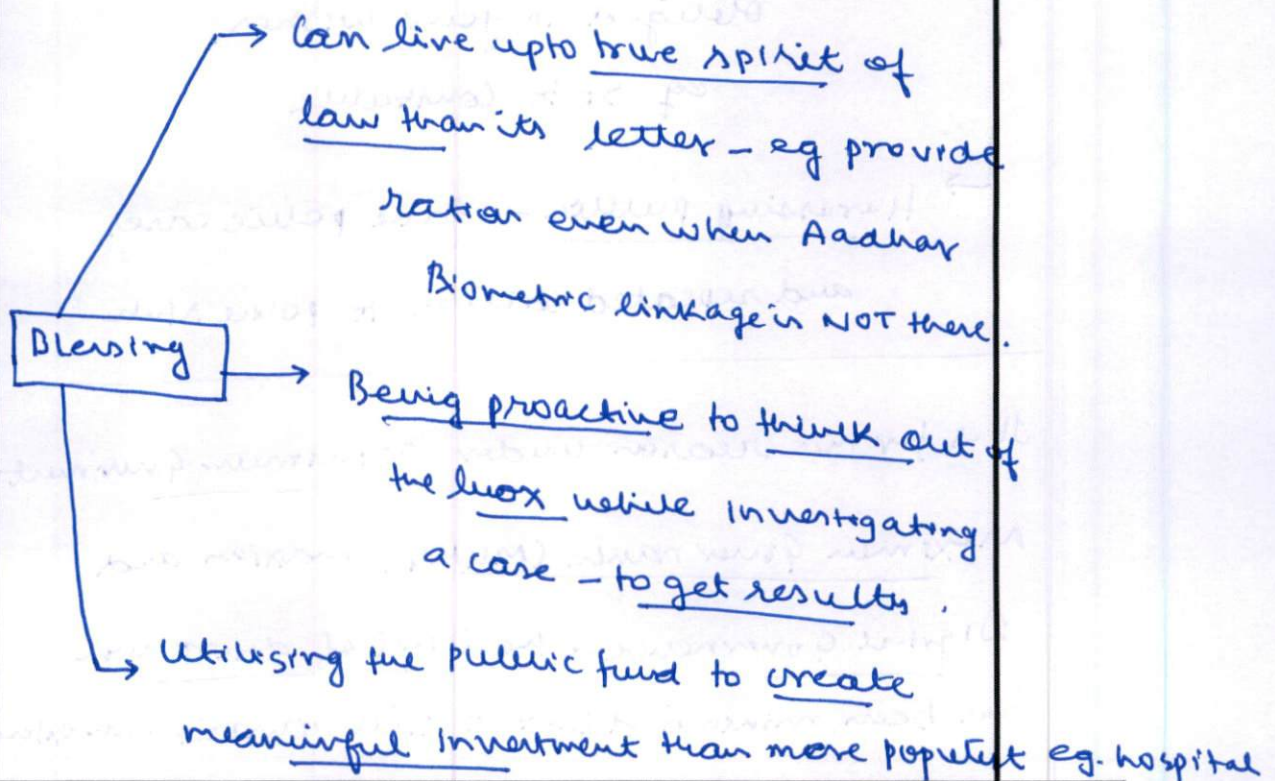 Can live upto true spirit of
law than its letter - eg provide
ration even when Aadhar
Biometric linkage is NOT there.
Blessing
Being proactive to think out of
the box while investigating
a case - to get results.
Utilising the public fund to create
meaningful investment than more populist eg. hospital